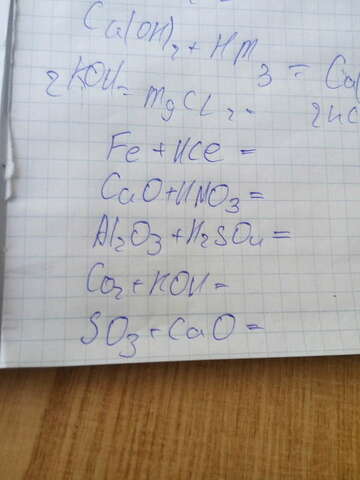 Ca(OH)₂ + HM
3 = Ca(
2KOH = MgCl₂.
Fe + HCl =
CaO + HNO₃ =
Al₂O₃ + H₂SO₄ =
CO₂ + KOH =
SO₃ + CaO =